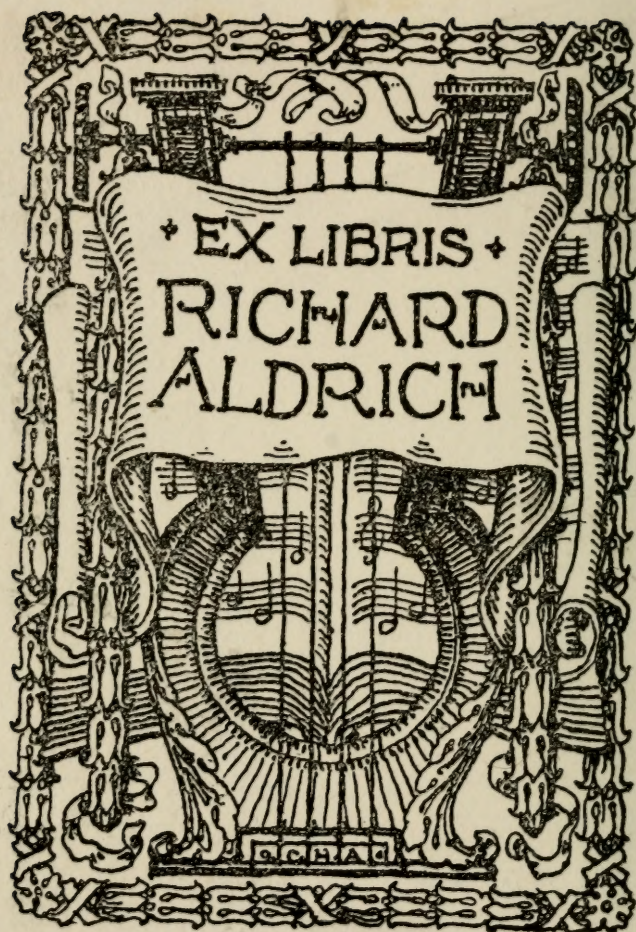 EX LIBRIS
RICHARD
ALDRICH
CHA